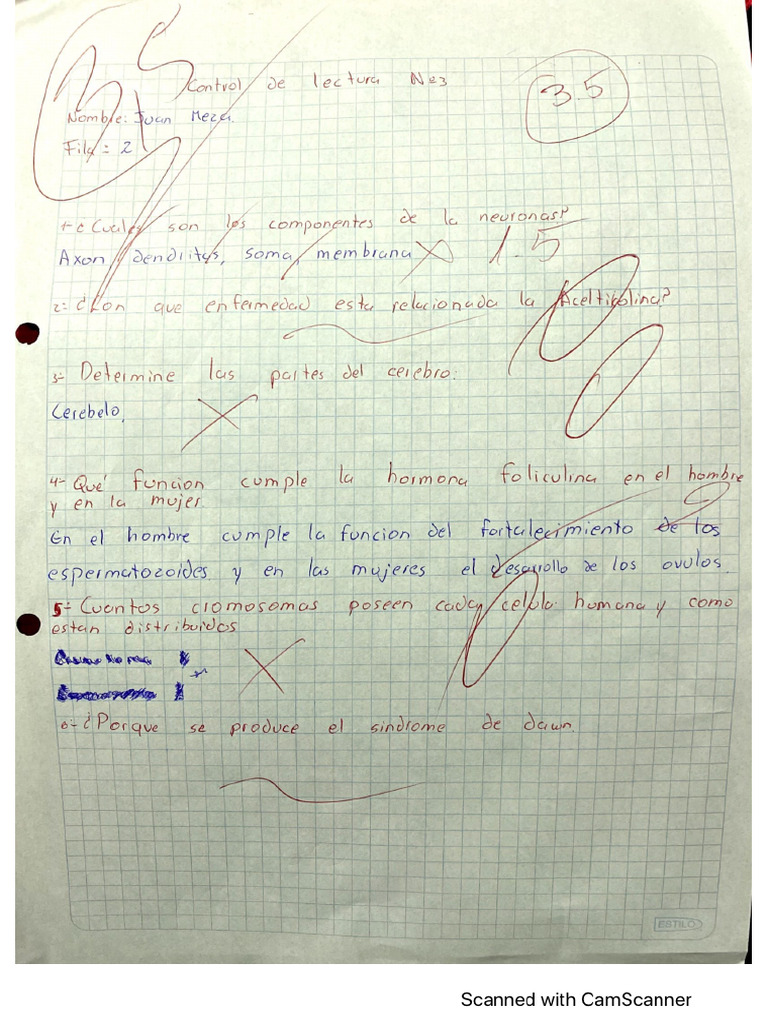 3.5
Control de lectura Nº3
3.5
Nombre: Juan Meza.
Fila: 2
1- ¿Cuales son los componentes de la neuronas?
Axon, dendritas, soma, membrana
1.5
2- ¿Con que enfermedad esta relacionada la Aceltilcolina?
3- Determine las partes del cerebro:
Cerebelo.
4- Qué funcion cumple la hormona foliculina en el hombre
y en la mujer
En el hombre cumple la funcion del fortalecimiento de los
espermatozoides y en las mujeres el desarrollo de los ovulos.
5- Cuantos cromosomas poseen cada celula humana y como
estan distribuidos
6- ¿Porque se produce el sindrome de dawn.
ESTILO
Scanned with CamScanner